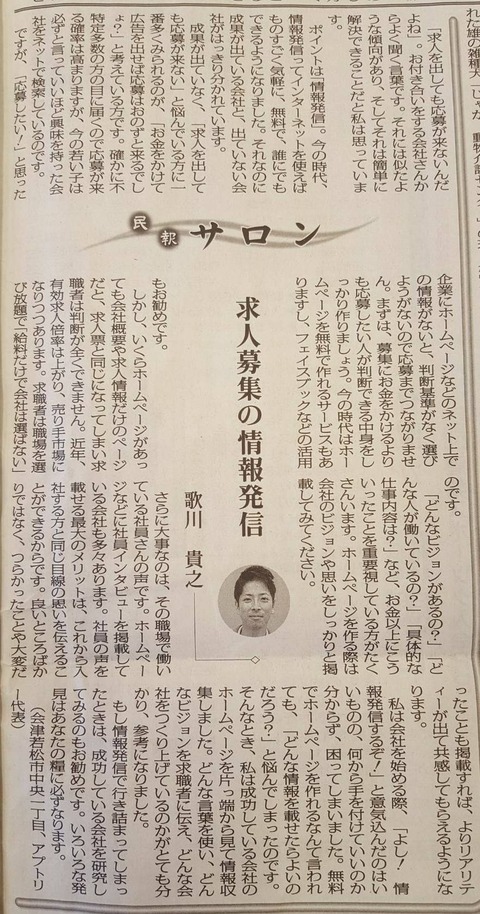 れた雄の雑種犬
「求人を出しても応募が来ないんだ
よね」。お付き合いをする会社さんか
らよく聞く言葉です。それには似たよ
うな傾向があり、そしてそれは簡単に
解決できることだと私は思っていま
す。
ポイントは「情報発信」。今の時代、
情報発信ってインターネットを使えば
ものすごく気軽に、無料で、誰にでも
できるようになりました。それなのに
成果が出ている会社と、出ていない会
社がはっきり分かれています。
成果が出ていなく、「求人を出して
も応募が来ない」と悩んでいる方に一
番多くみられるのが、「お金をかけて
広告を出せば応募はおのずと来るでし
ょ?」と考えている方です。確かに不
特定多数の方の目に届くので応募が来
る確率は高まりますが、今の若い子は
必ずと言っていいほど興味を持った会
社をネットで検索しているのです。
ですが、「応募したい!」と思った
民報サロン
求人募集の情報発信
歌川 貴之
企業にホームページなどのネット上で
の情報がないと、判断基準がなく選び
ようがないので応募までつながりませ
ん。まずは、募集にお金をかけるより
も応募したい人が判断できる中身をし
っかり作りましょう。今の時代はホー
ムページを無料で作れるサービスもあ
りますし、フェイスブックなどの活用
もお勧めです。
しかし、いくらホームページがあっ
ても会社概要や求人情報だけのページ
だと、求人票と同じになってしまい求
職者は判断が全くできません。近年、
有効求人倍率は上がり、売り手市場に
なりつつあります。求職者は職場を選
び放題で「給料だけで会社は選ばない」
のです。
「どんなビジョンがあるの?」「ど
んな人が働いているの?」「具体的な
仕事内容は?」など、お金以上にこう
いったことを重要視している方がたく
さんいます。ホームページを作る際は
会社のビジョンや思いをしっかりと掲
載してみてください。
さらに大事なのは、その職場で働い
ている社員さんの声です。ホームペー
ジなどに社員インタビューを掲載して
いる会社も多々あります。社員の声を
載せる最大のメリットは、これから入
社する方と同じ目線の思いを伝えるこ
とができるからです。良いところばか
りではなく、つらかったことや大変だ
ったことも掲載すれば、よりリアリテ
ィーが出て共感してもらえるようにな
ります。
私は会社を始める際、「よし! 情
報発信するぞ!」と意気込んだのはい
いものの、何から手を付けていいのか
分からず、困ってしまいました。無料
でホームページを作れるなんて言われ
ても、「どんな情報を載せたらよいの
だろう?」と悩んでしまったのです。
そんなとき、私は成功している会社の
ホームページを片っ端から見て情報収
集しました。どんな言葉を使い、どん
なビジョンを求職者に伝え、どんな会
社をつくり上げているのかがとても分
かり、参考になりました。
もし情報発信で行き詰まってしまっ
たときは、成功している会社を研究し
てみるのもお勧めです。いろいろな発
見はあなたの糧に必ずなります。
(会津若松市中央一丁目、アプトリ
ー代表)